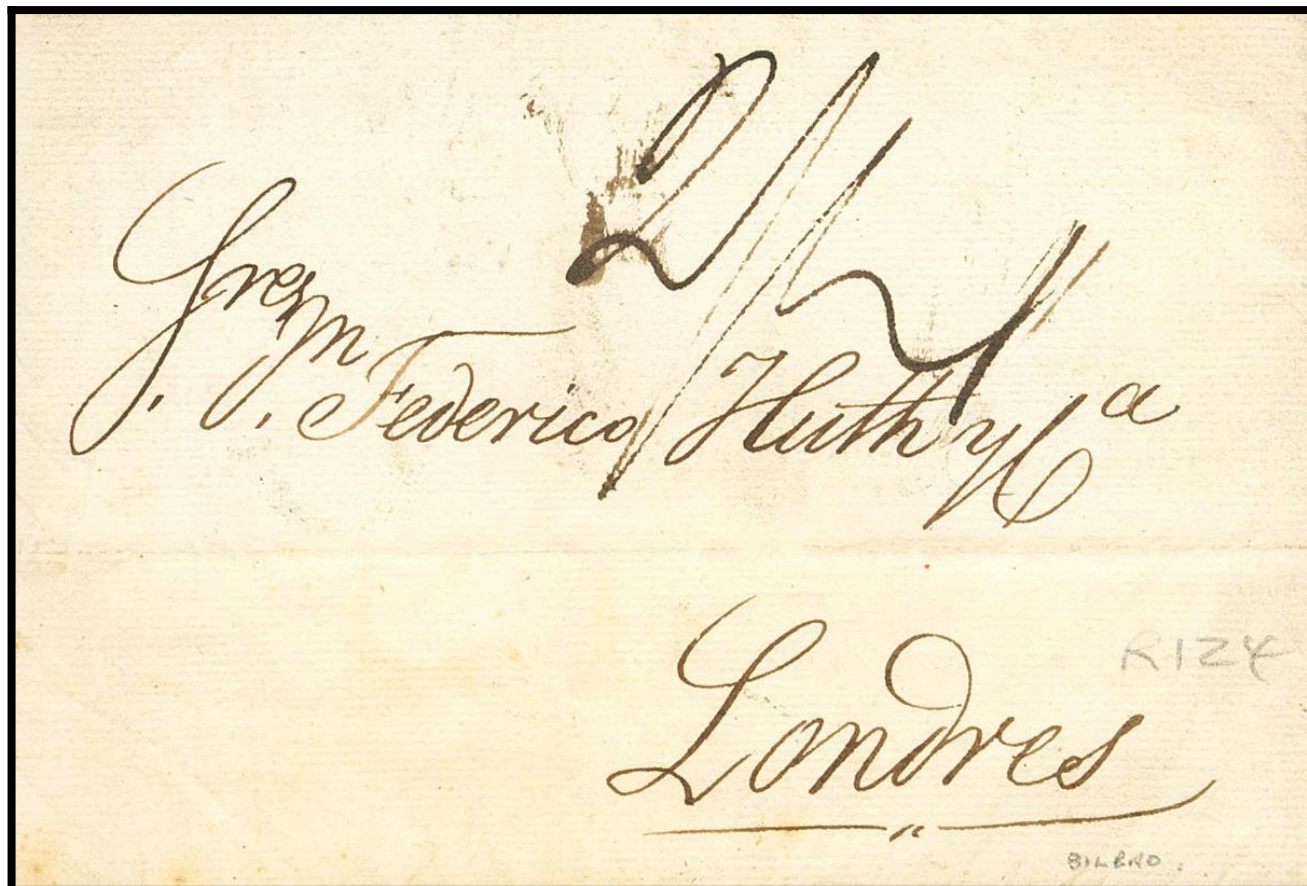 2/2
Sres. Dn. Federico Huth y Ca
Londres
R124
BILBAO